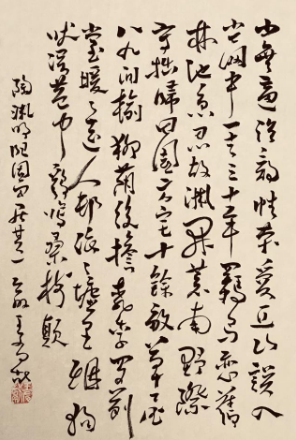 少無適俗韻性本愛丘山誤入
塵網中一去三十年羈鳥戀舊
林池魚思故淵開荒南野際
守拙歸田園方宅十餘畝草屋
八九間榆柳蔭後簷桃李羅前
堂曖曖遠人村依依墟里煙狗
吠深巷中雞鳴桑樹顛
陶淵明歸園田居其一